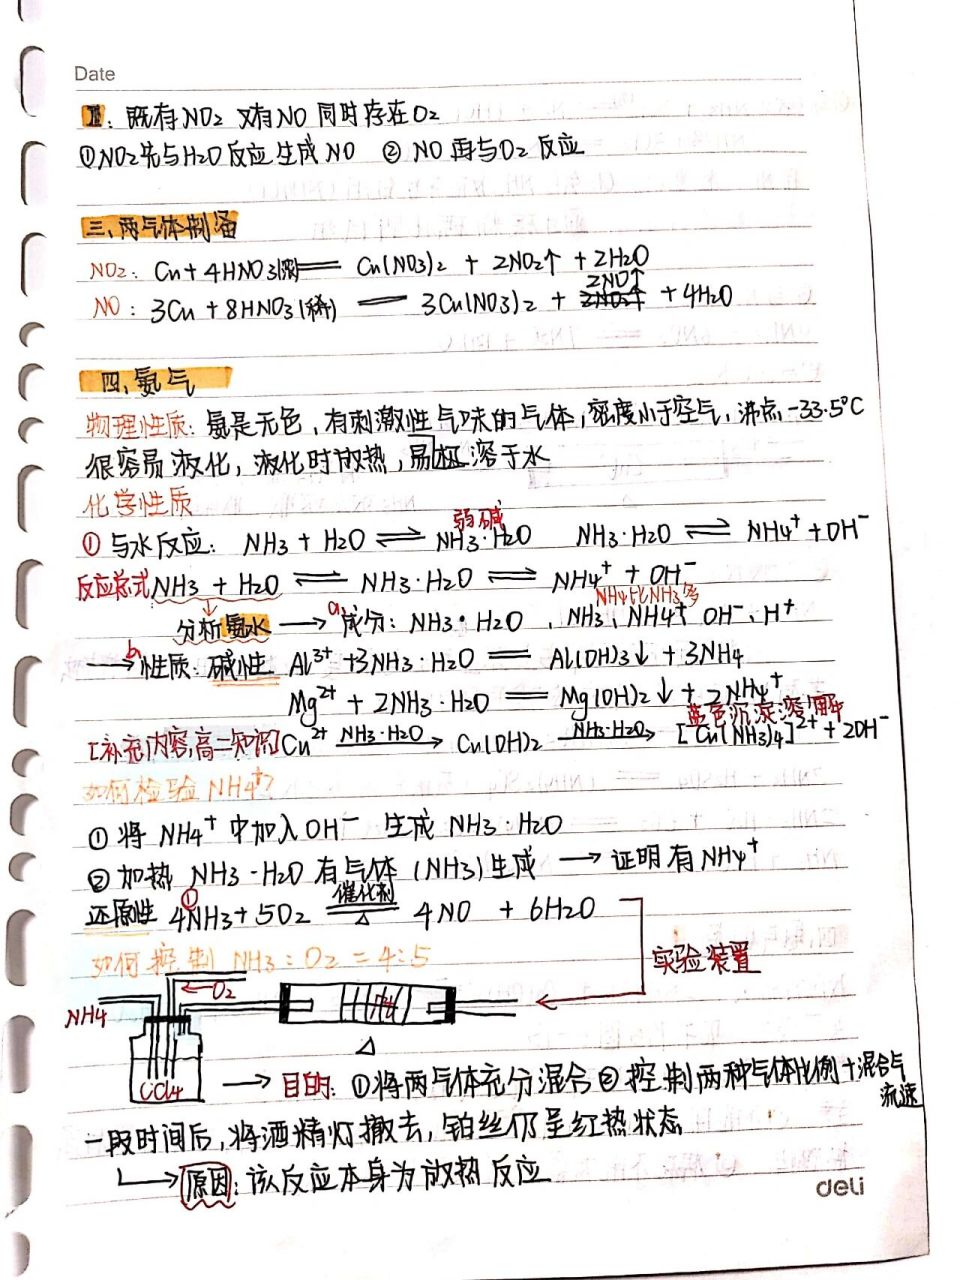 Date
Ⅲ：既有NO2 又有NO 同时存在O2
①NO2先与H2O反应生成NO ② NO再与O2反应
三、两气体制备
NO2：Cu + 4HNO3(浓) ══ Cu(NO3)2 + 2NO2↑ + 2H2O
2NO↑
NO：3Cu + 8HNO3(稀) ══ 3Cu(NO3)2 + + 4H2O
四、氨气
物理性质：氨是无色，有刺激性气味的气体，密度小于空气，沸点-33.5°C
很容易液化，液化时放热，易极溶于水
化学性质
弱碱
① 与水反应：NH3 + H2O ⇌ NH3·H2O NH3·H2O ⇌ NH4⁺ + OH⁻
反应总式 NH3 + H2O ⇌ NH3·H2O ⇌ NH4⁺ + OH⁻
NH4⁺比NH3多
分析氨水 → a 成分：NH3·H2O、NH3、NH4⁺、OH⁻、H⁺
→ b 性质：碱性 Al³⁺ + 3NH3·H2O ══ Al(OH)3↓ + 3NH4
Mg²⁺ + 2NH3·H2O ══ Mg(OH)2↓ + 2NH4⁺
蓝色沉淀溶解
[补充内容，高二知识] Cu²⁺ NH3·H2O→ Cu(OH)2 NH3·H2O→ [Cu(NH3)4]²⁺ + 2OH⁻
如何检验NH4⁺?
① 将 NH4⁺ 中加入OH⁻ 生成 NH3·H2O
② 加热 NH3·H2O 有气体 (NH3) 生成 → 证明有NH4⁺
还原性 ① 4NH3 + 5O2 催化剂══△ 4NO + 6H2O
如何控制 NH3：O2 = 4：5
实验装置
O2
NH4
△
CCl4
→ 目的：①将两气体充分混合 ② 控制两种气体比例+混合气
流速
一段时间后，将酒精灯撤去，铂丝仍呈红热状态
→ 原因：该反应本身为放热反应
deli